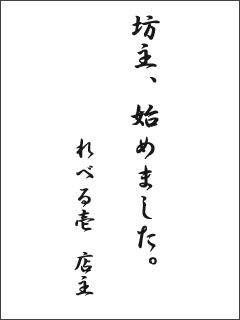 坊主、始めました。
れべる壱　店主